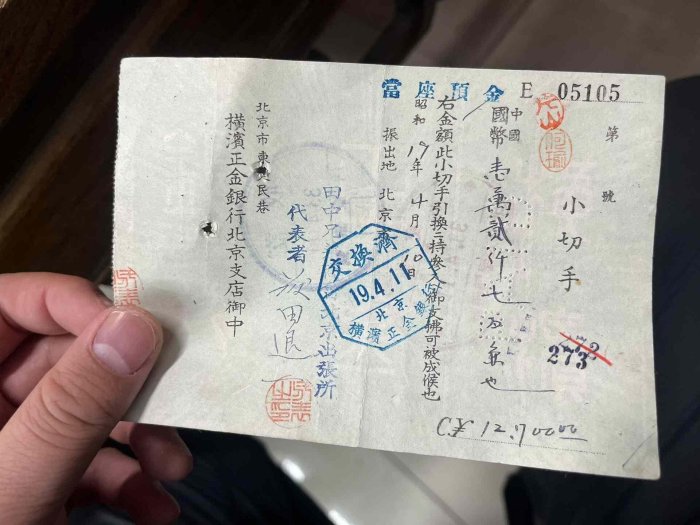 當座預金 E 05105
第 號
小切手
中國
國幣壹萬貳仟七百無也
右金額此小切手引換ニ持參人ヘ御支拂可被成候也
昭和19年4月10日
振出地 北京市
北京出張所
代表者
北京市東交民巷
橫濱正金銀行北京支店御中
交換濟
19.4.11
北京
橫濱正金銀行
273